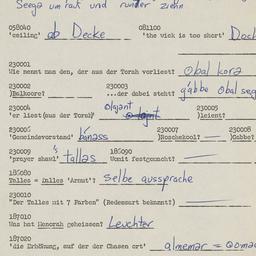 Seega um hat und runter ziehn
058040 081100
'ceiling' ob Decke 'the wick is too short' Doch
230001
Wie nennt man den, der aus der Torah vorliest? obal kora
230002 230003
)Balkoore? ...der dabei steht? gábbe obal seg
230004 230005
'er liest(aus der Torah)' olajənt )leient?
230006 230007 230008
'Gemeindevorstand' bánass )Roschekool? )Gabbe?
230009 185090
'prayer shawl' tallas Womit festgemacht?
185080
Talles = Dalles 'Armut'? selbe aussprache
230010
"Der Talles mit 7 Farben" (Redensart bekannt?)
187010
Was hat Menorah geheissen? Leuchter
187020
'die Erhöhung, auf der der Chasen ort' almemar =